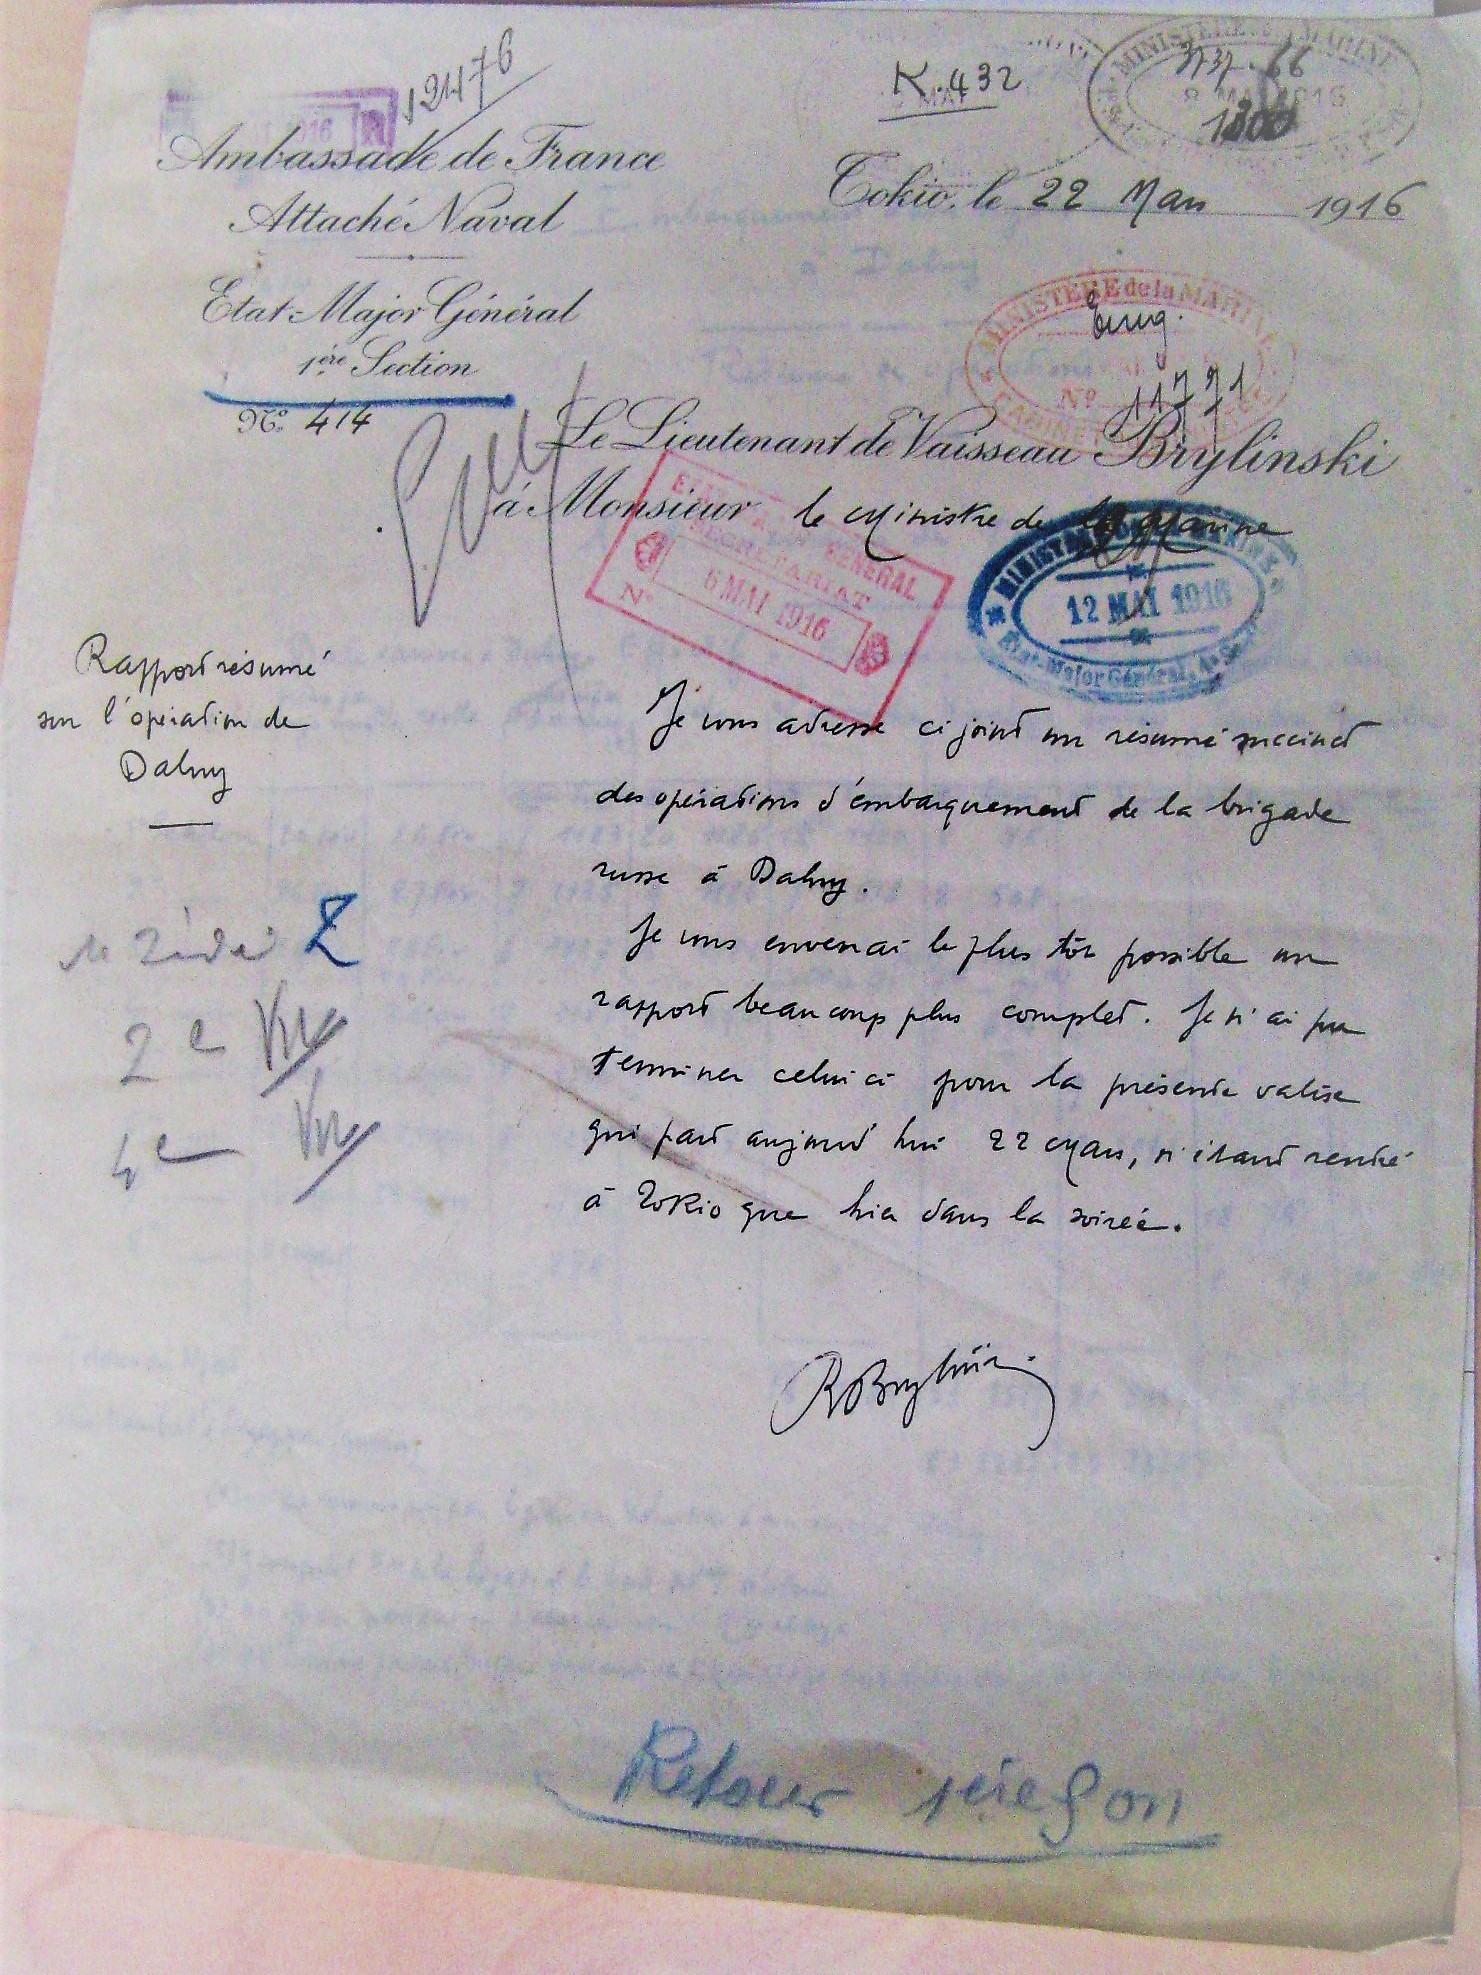 12476
K.432
MINISTERE DE LA MARINE
3737.66
8 MAI 1916
Ambassade de France
Attaché Naval
Etat-Major Général
1ère Section
N° 414
Tokio, le 22 Mars 1916
MINISTERE de la MARINE
Enreg.
N° 11771
Le Lieutenant de Vaisseau Brylinski
à Monsieur le Ministre de la Marine
ETAT-MAJOR GENERAL
SECRETARIAT
6 MAI 1916
N°
MINISTERE DE LA MARINE
12 MAI 1916
Etat-Major Général, 1e S.
Rapport résumé
sur l'opération de
Dalny
Je vous adresse ci joint un résumé succinct
des opérations d'embarquement de la brigade
russe à Dalny.
Je vous enverrai le plus tôt possible un
rapport beaucoup plus complet. Je n'ai pu
terminer celui ci pour la présente valise
qui part aujourd'hui 22 Mars, n'étant rentré
à Tokio que hier dans la soirée.
Z
2e Vu
4e Vu
RBrylinski
Retour 1ère Son